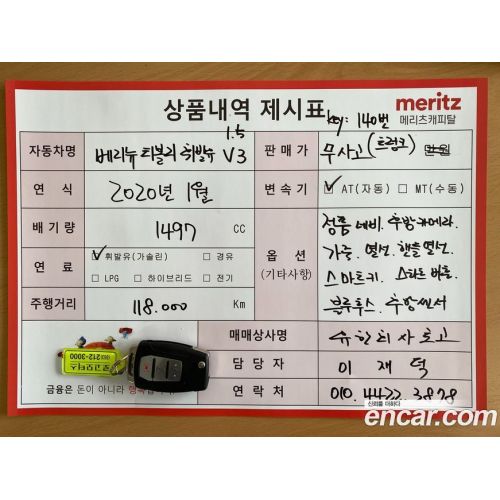 상품내역 제시표
key: 140번
meritz
메리츠캐피탈
자동차명 베리뉴 티볼리 휘발유 1.5 V3
판매가 무사고(트렁크) 만원
연 식 2020년 1월
변속기 ☑ AT(자동) ☐ MT(수동)
배기량 1497 CC
연 료 ☑ 휘발유(가솔린) ☐ 경유
☐ LPG ☐ 하이브리드 ☐ 전기
주행거리 118.000 Km
옵 션
(기타사항)
정품 네비. 후방카메라.
가죽. 열선. 핸들열선.
스마트키. 스타트 버튼.
블루투스. 후방센서
매매상사명
담 당 자 이 재 덕
연 락 처 010.4422.3878
212-3000
금융은 돈이 아니라 행복
신뢰를 더하다
encar.com